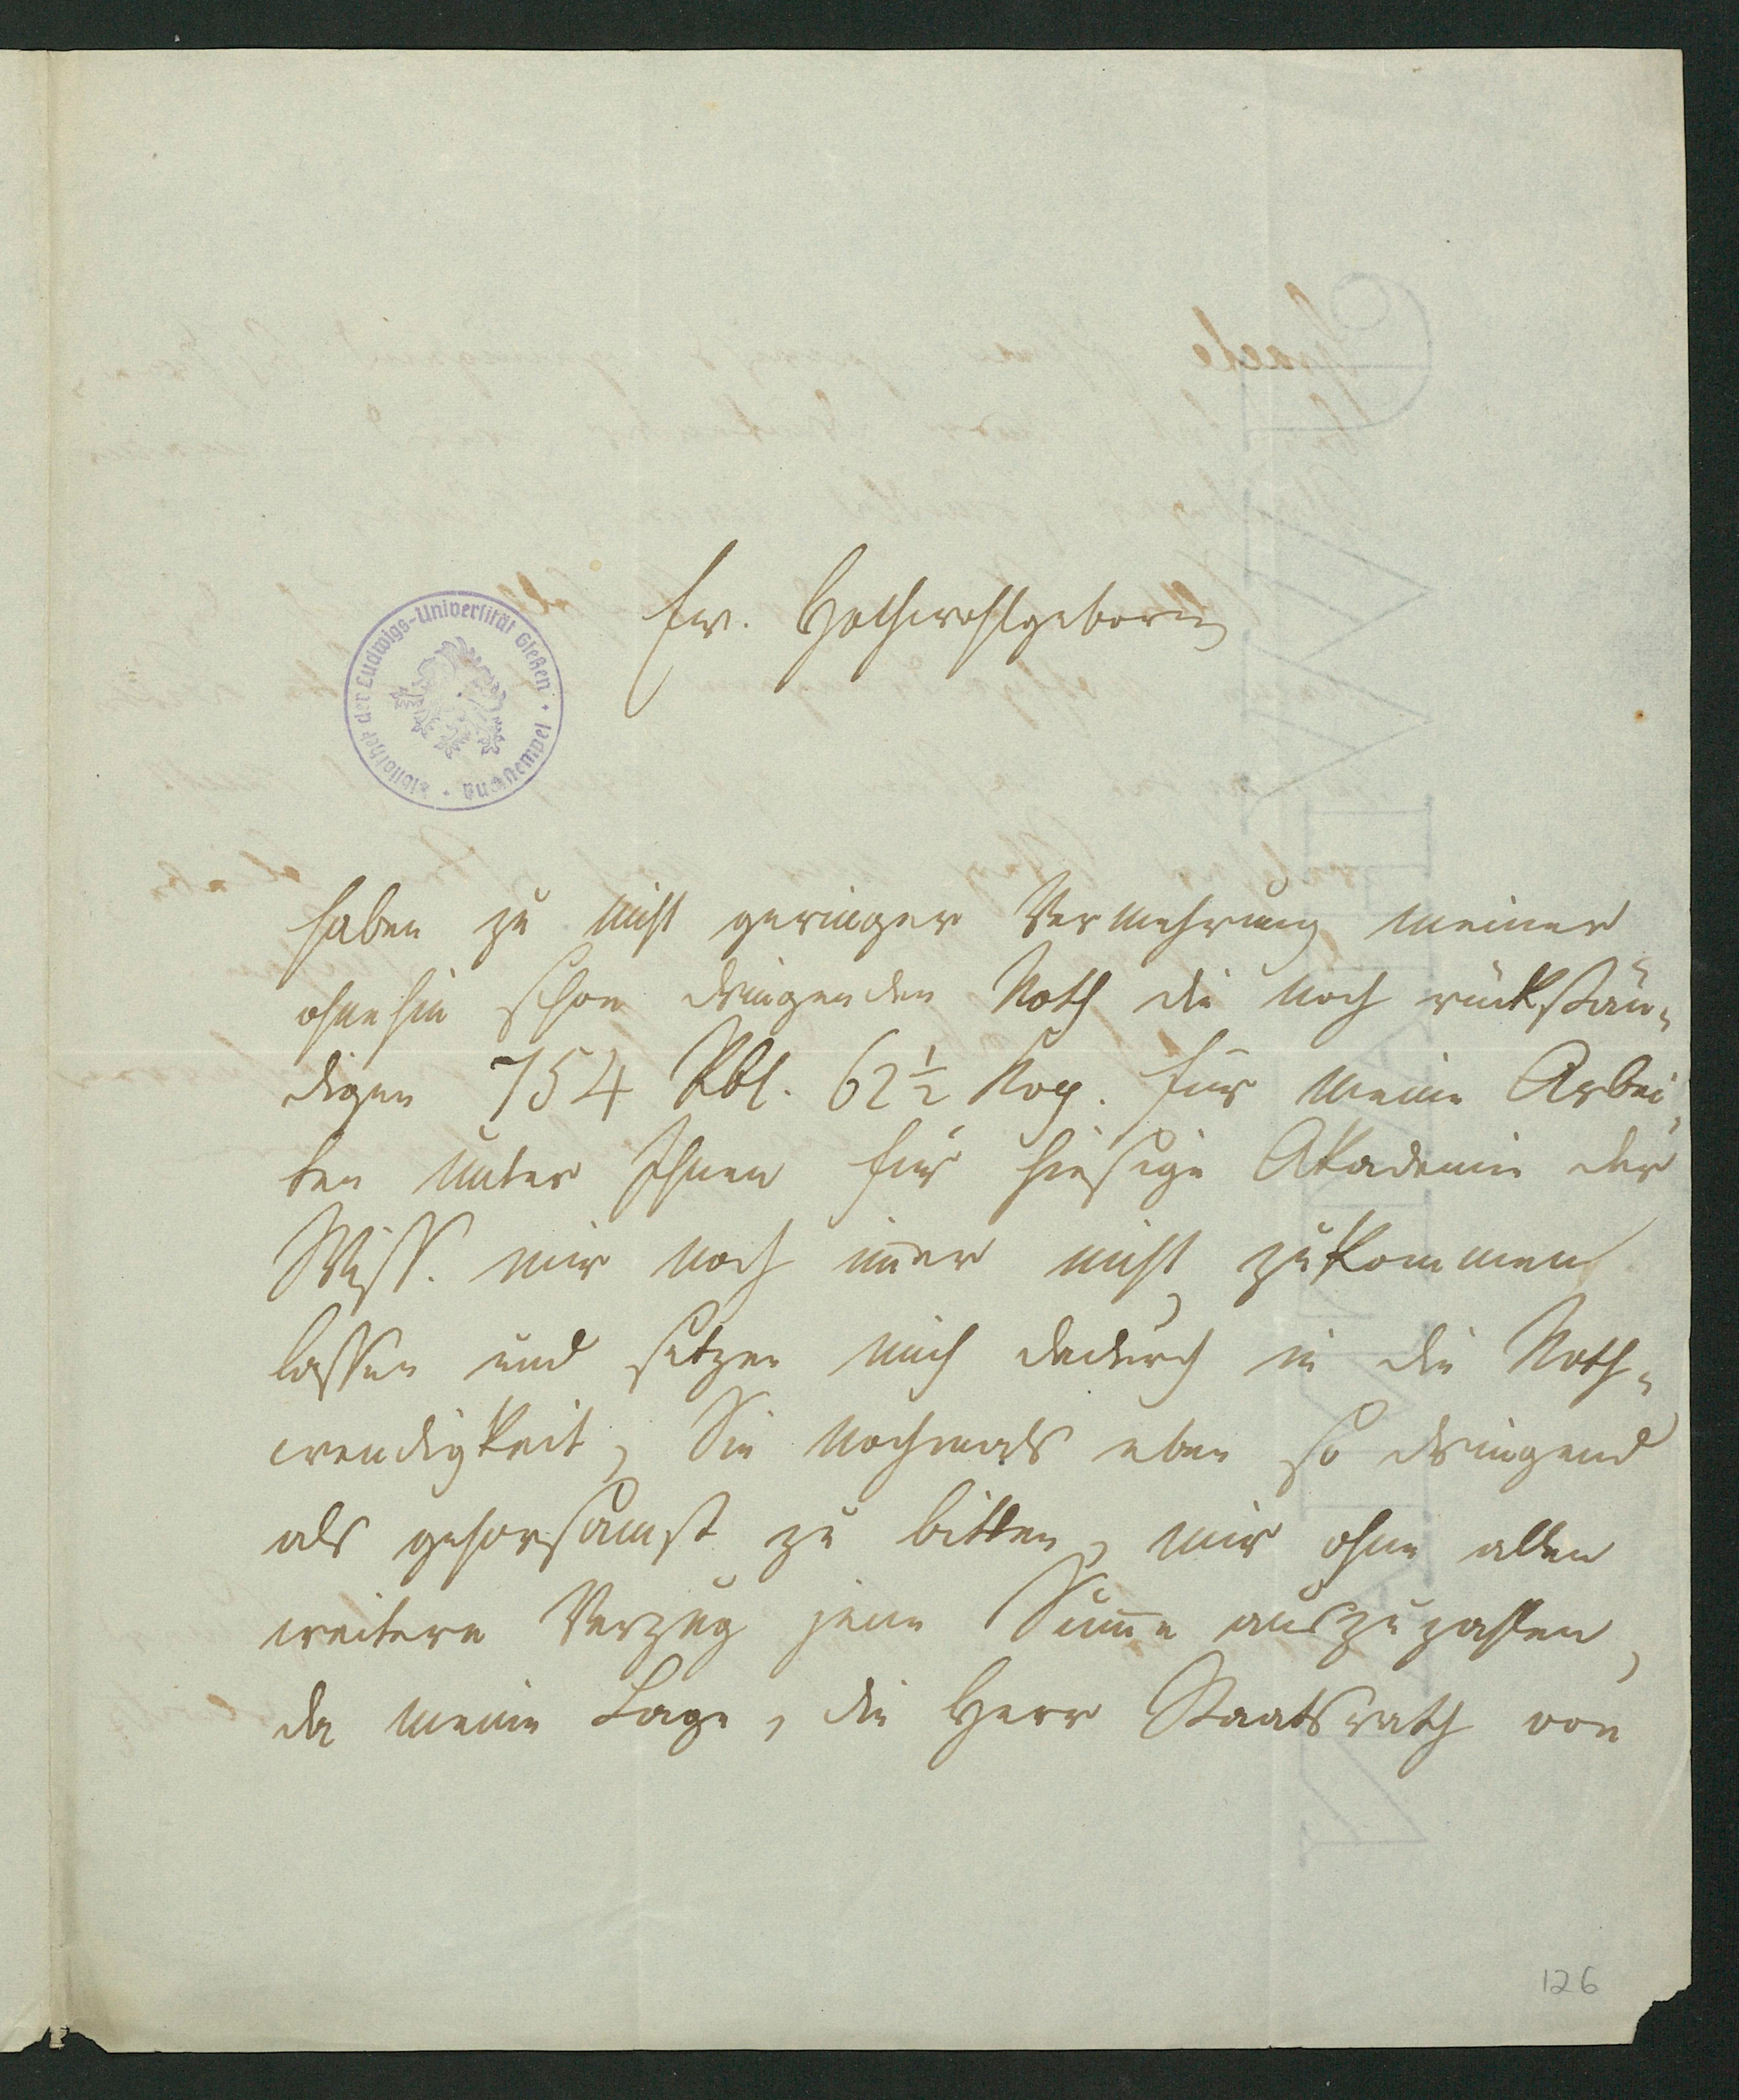 Ew. Hochwohlgeboren
Bibliothek der Ludwigs-Universität Gießen · Buchstempel ·
haben zu nicht geringer Vermehrung meiner
ohnehin schon dringenden Noth die noch rückstän-
digen 754 Rbl. 62½ Kop. für meine Arbei-
ten unter Ihnen für hiesige Akademie der
Wiss. mir noch im̅er nicht zukommen
lassen und setzen mich dadurch in die Noth-
wendigkeit, Sie nochmals eben so dringend
als gehorsamst zu bitten, mir ohne allen
weitern Verzug jene Sum̅e auszuzahlen,
da meine Lage, die Herr Staatsrath von
126